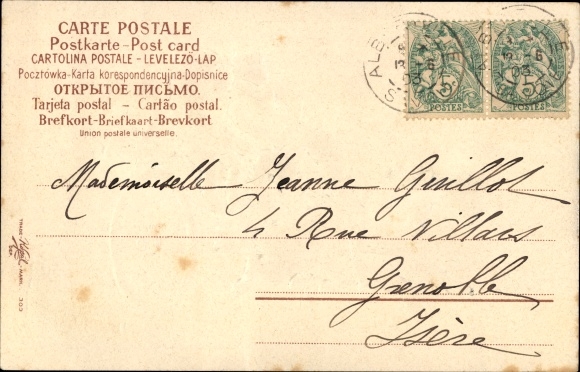 CARTE POSTALE
Postkarte - Post card
CARTOLINA POSTALE - LEVELEZÖ-LAP
Pocztówka - Karta korespondencyjna - Dopisnice
ОТКРЫТОЕ ПИСЬМО.
Tarjeta postal - Cartão postal.
Brefkort - Briefkaart - Brevkort
Union postale universelle.
5 5
POSTES POSTES
Mademoiselle Jeanne Guillot
4 Rue Villars
Grenoble
Isère
TRADE MARK
303